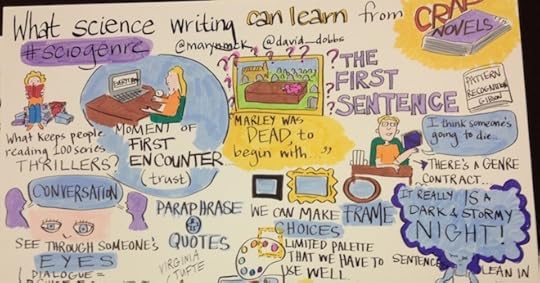 What science writing can learn from
CRAP
NOVELS
#sciogenre
@marynmck @david_dobbs
EVERYTHING
What keeps people
reading 100s or is
THRILLERS?
MOMENT OF
FIRST
ENCOUNTER
(trust)
"MARLEY WAS
DEAD, to
begin with..."
THE
FIRST
SENTENCE
PATTERN
RECOGNITION
GIBSON
I think someone's
going to die...
THERE'S A GENRE
CONTRACT...
CONVERSATION
SEE THROUGH SOMEONE'S
EYES
DIALOGUE =
PARAPHRASE
QUOTES
VIRGINIA
TUFTE
WE CAN MAKE FRAME
CHOICES
LIMITED PALETTE
THAT WE HAVE TO
USE WELL
IT REALLY IS A
DARK & STORMY
NIGHT!
SENTENCE
LEAN IN